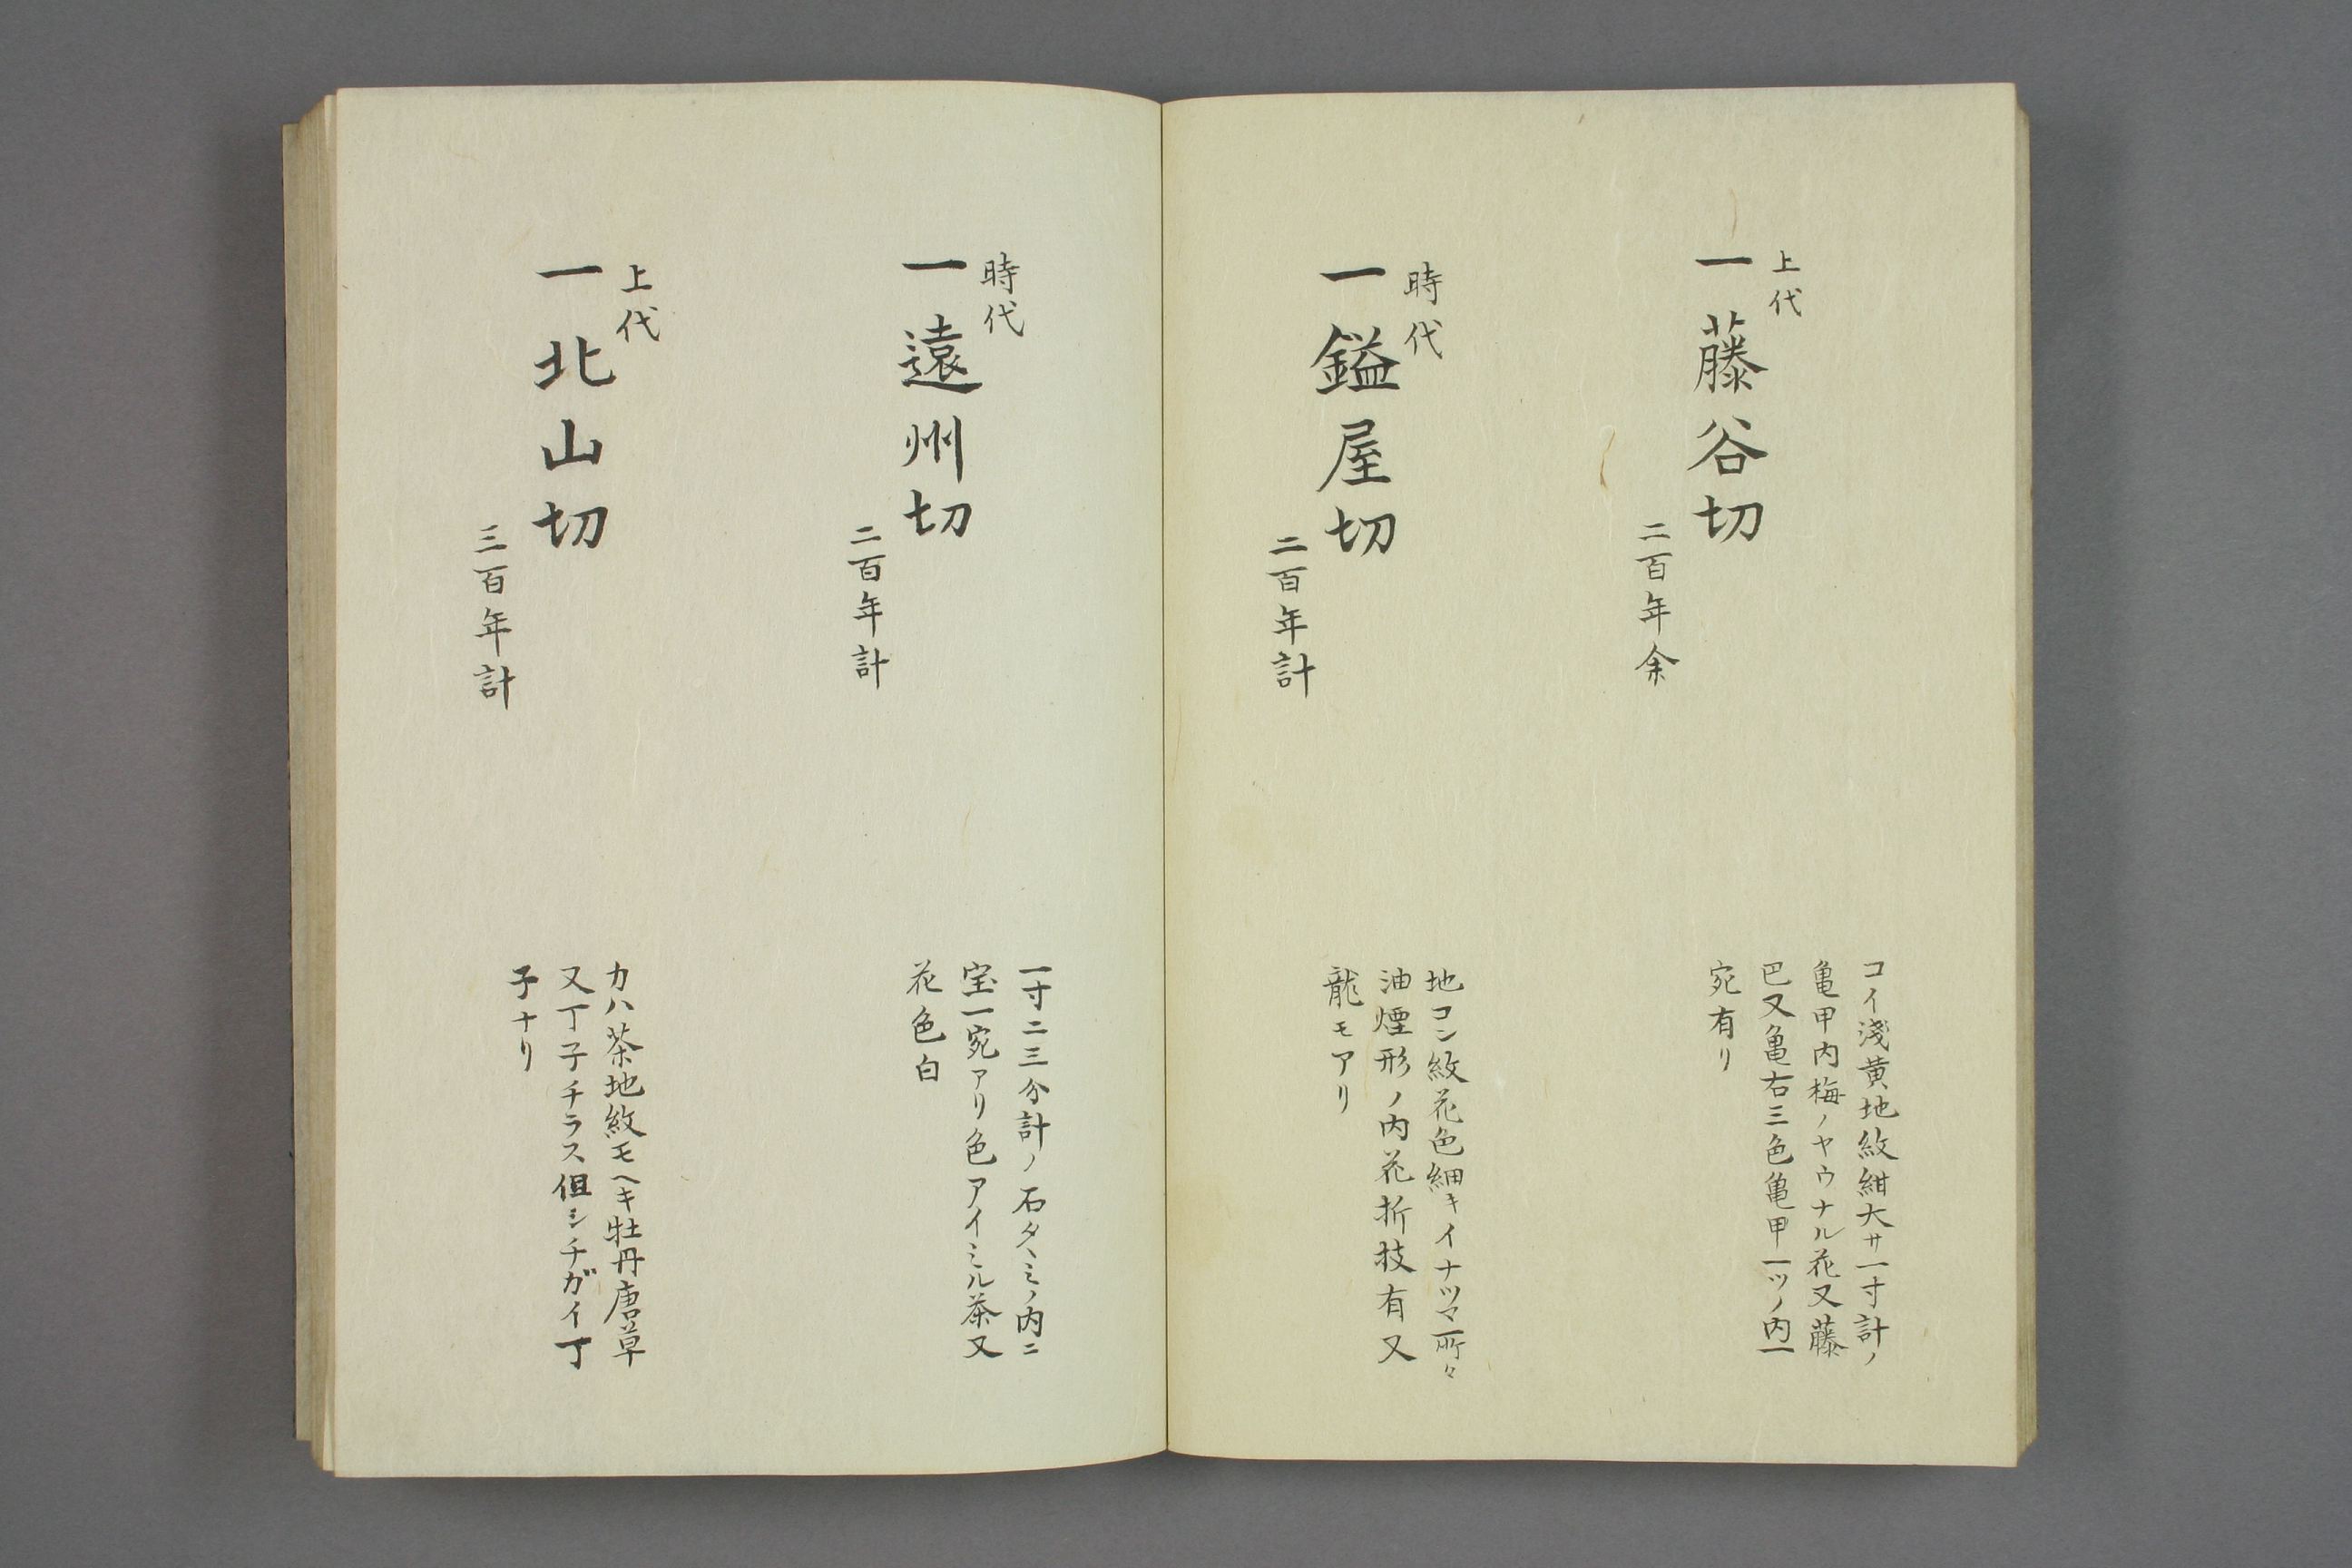 上代
一藤谷切
二百年余
コイ淺黄地紋紺大サ一寸計ノ
亀甲内梅ノヤウナル花又藤
巴又亀右三色亀甲一ツノ内一
宛有リ
時代
一鎰屋切
二百年計
地コン紋花色細キイナツマ所々
油煙形ノ内花折枝有又
龍モアリ
時代
一遠州切
二百年計
一寸二三分計ノ石タヽミノ内ニ
宝一宛アリ色アイミル茶又
花色白
上代
一北山切
三百年計
カハ茶地紋モヘキ牡丹唐草
又丁子チラス但シチガイ丁
子ナリ